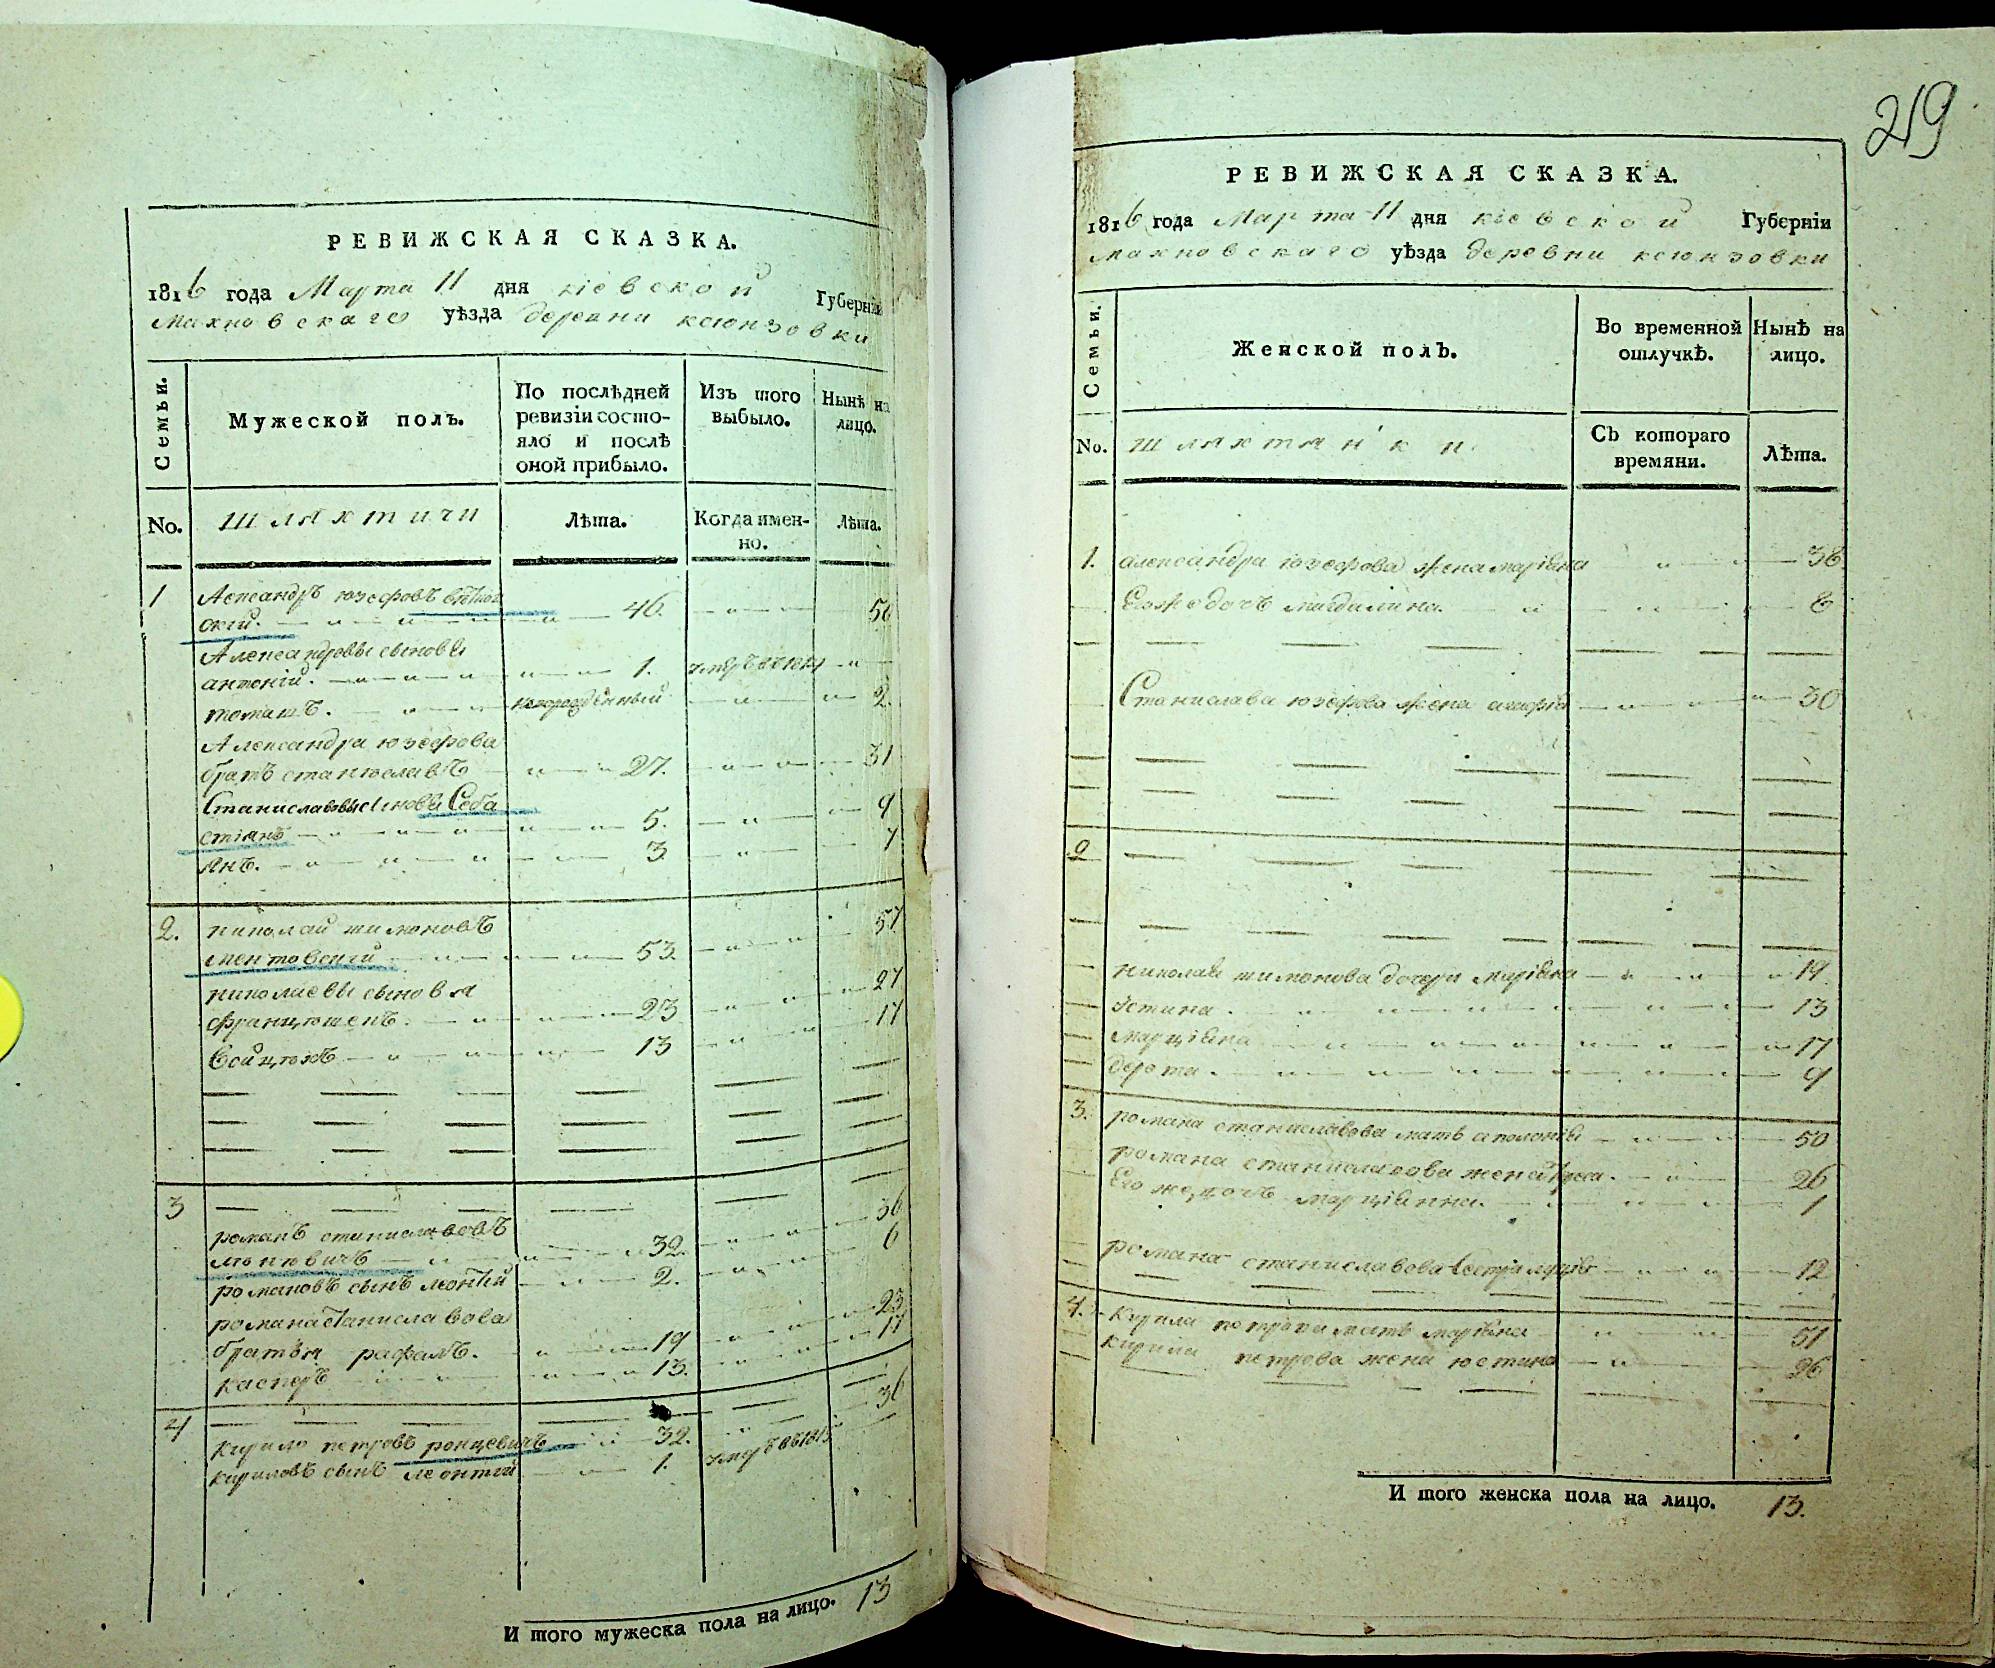 РЕВИЖСКАЯ СКАЗКА.
1816 года Марта 11 дня кіевской Губерніи
Махновскаго уѣзда деревни ксюнзовки
Семьи.
Мужеской полъ.
По послѣдней ревизіи состояло и послѣ оной прибыло.
Изъ того выбыло.
Нынѣ на лицо.
No.
Шляхтичи
Лѣта.
Когда именно.
Лѣта.
1
Александръ юзефовъ
скій. 46. 50
Александровы сыновья
антоній. 1.
томашъ. новорожденный 2.
Александра юзефова
братъ станиславъ 27. 31
Станиславовы Сыновья Себа
стіянъ 5. 9
Янъ. 3 7
2. николай шимоновъ
ментовскій 53. 57
николаевы сыновья 27
францишекъ. 23 17
Войцехъ 13
3
романъ станиславовъ 36
32. 6
романовъ сынъ леонтій 2.
романа станиславова 23
братья рафалъ. 19 17
касперъ 13.
4 36
кирило петровъ ронцевичъ 32.
кириловъ сынъ леонтій 1.
И того мужеска пола на лицо. 13
219
РЕВИЖСКАЯ СКАЗКА.
1816 года Марта 11 дня кіевской Губерніи
махновскаго уѣзда деревни ксюнзовки
Семьи.
Женской полъ.
Во временной отлучкѣ.
Нынѣ на лицо.
No.
Шляхтянки.
Съ котораго времяни.
Лѣта.
1. александра юзефова жена маріяна 38
Его же дочь магдалина. 8
Станислава юзефова жена 30
2
николая шимонова дочери маріяна 19
Устина. 13
марціяна 17
дорота. 9
3. романа станиславова мать аполонія 50
романа станиславова жена 26
Его же дочь марціянна. 1
романа станиславова Сестра 12
4. Кирила петрова мать маріяна 51
кирила петрова жена юстина 26
И того женска пола на лицо. 13.